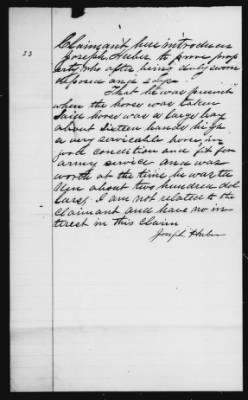 23
Claimant here introduces
Joseph Huber to prove prop
erty who after being duly sworn
deposes and says
That he was present
when the horse was taken
Said horse was a large bay
about sixteen hands high
a very servicable horse, in
good condition and fit for
army service and was
worth at the time he was ta
ken about two hundred dol
lars, I am not related to the
Claimant and have no in
terest in this Claim
Joseph Huber